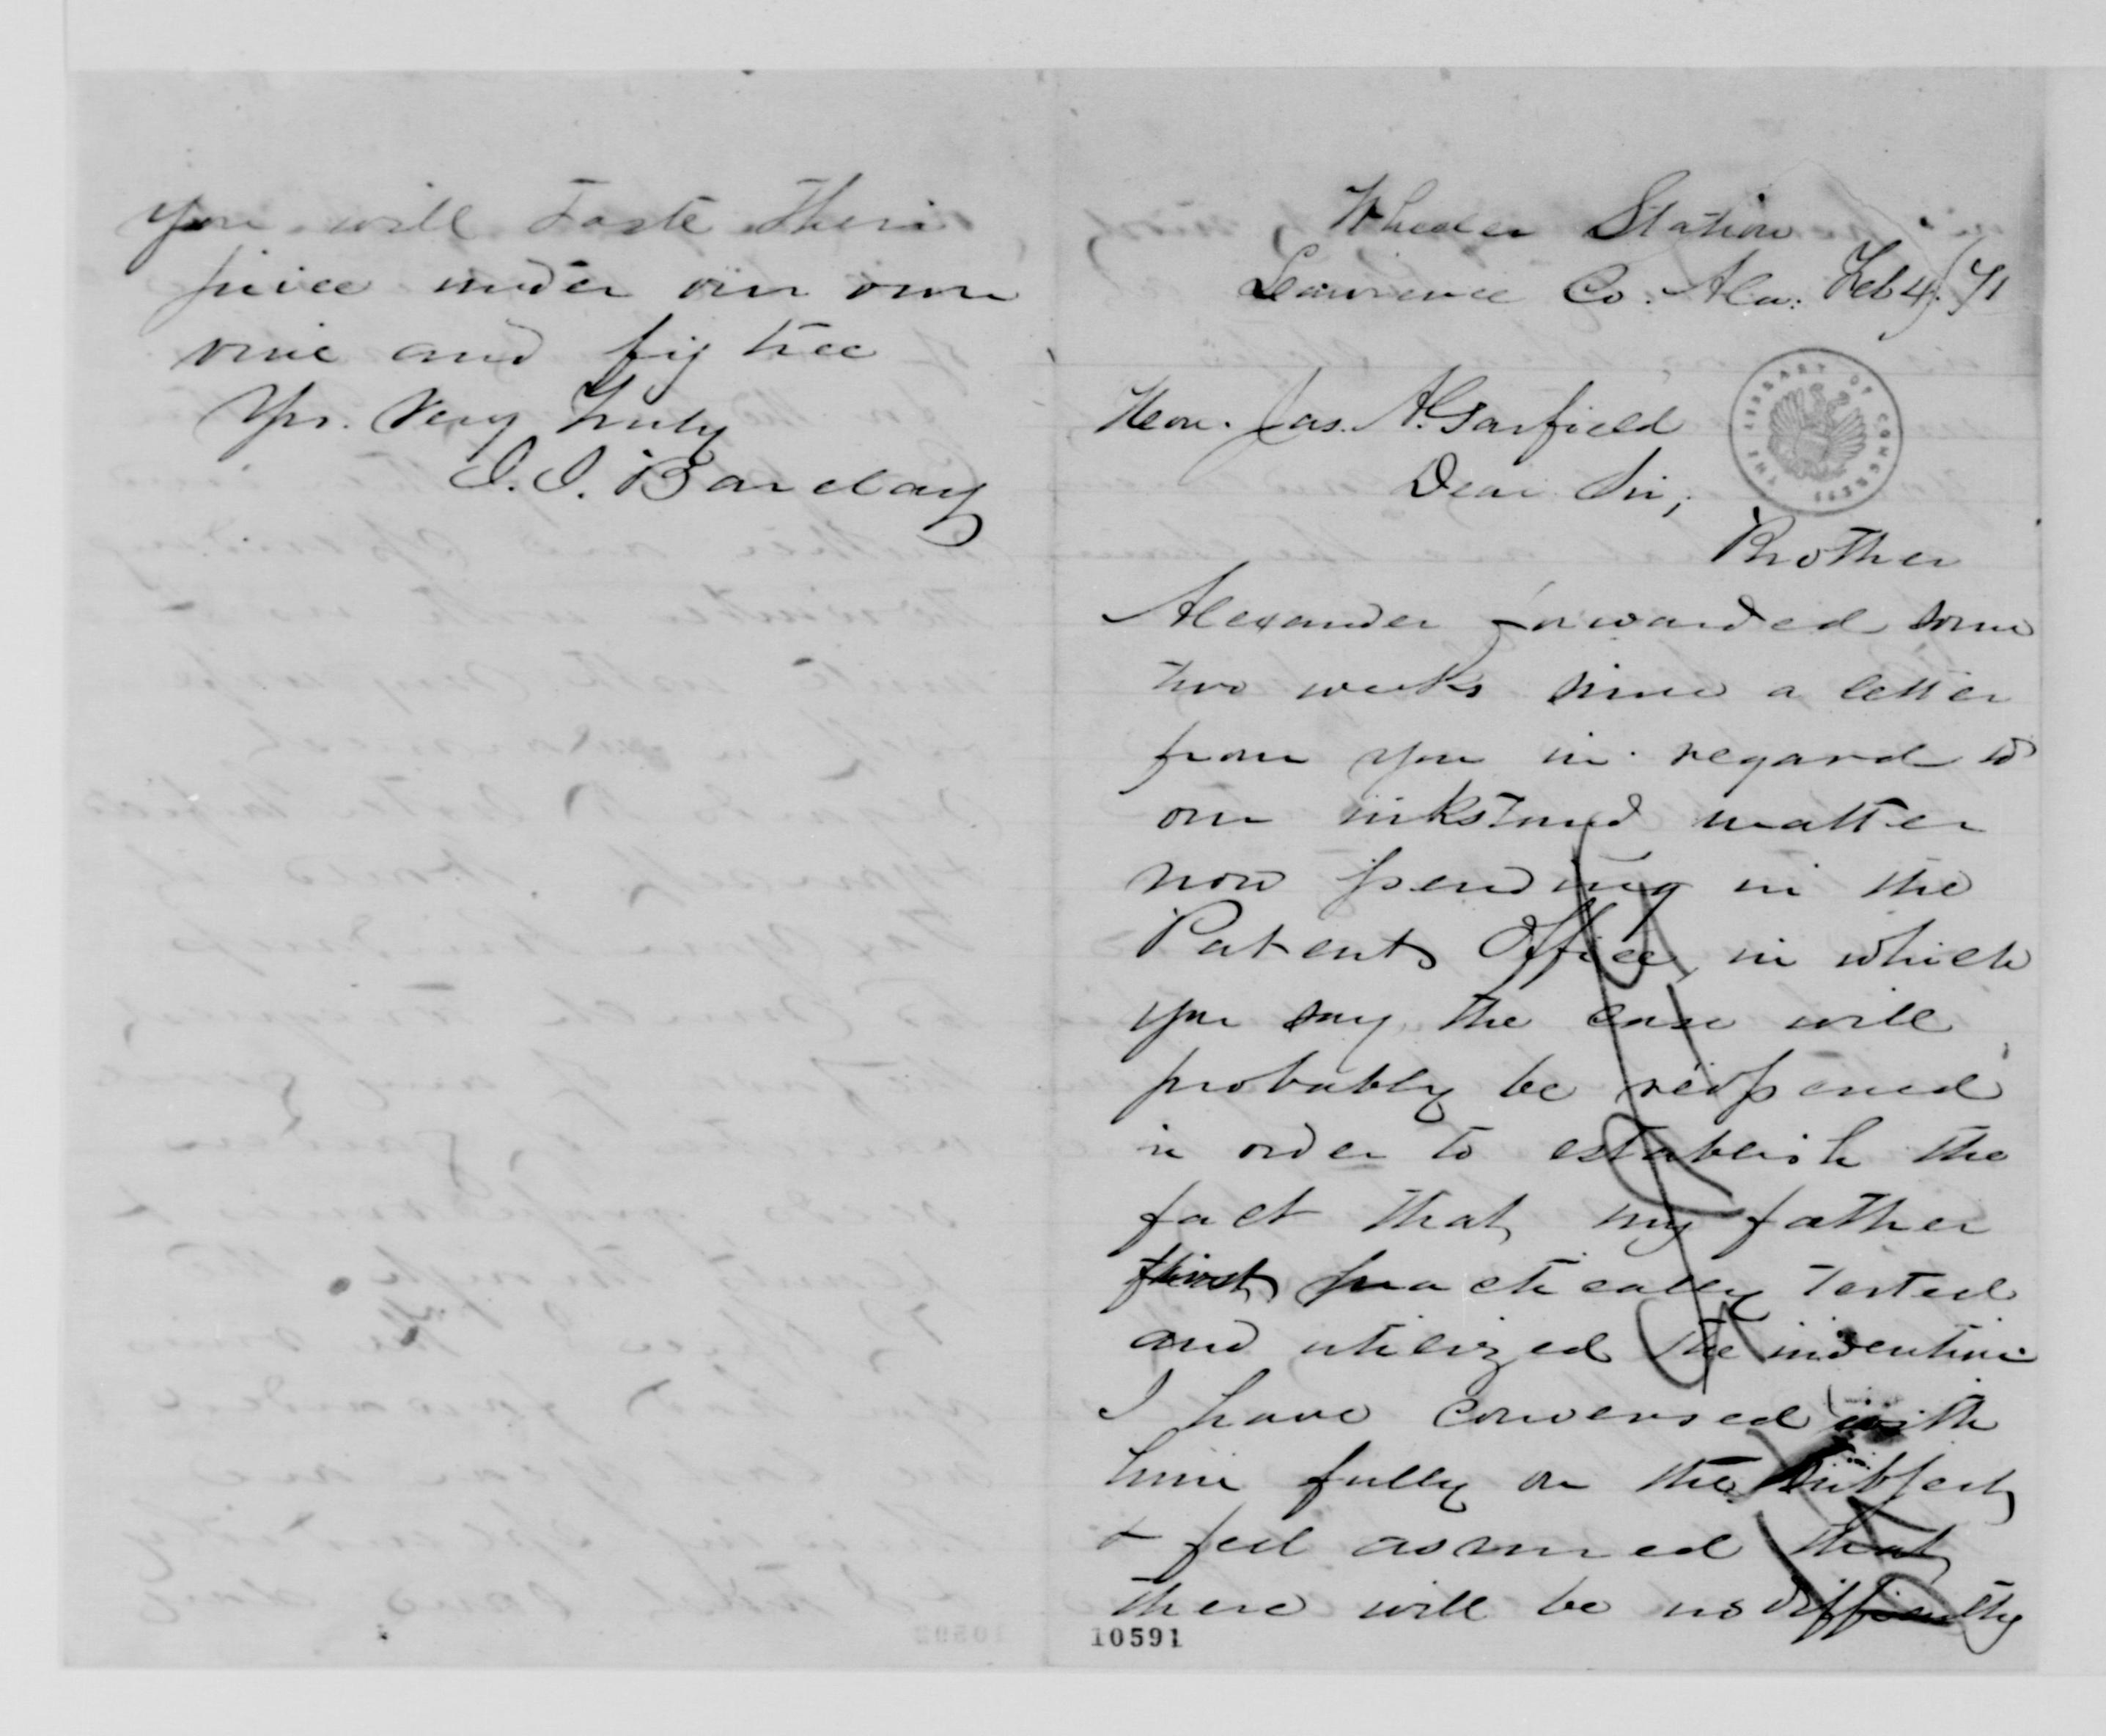 you will taste their
juice under our own
vine and fig tree
Yrs. Very Truly
J. J. Barclay
Wheeler Station
Lawrence Co. Ala. Feb 4/71
Hon. Jas. A. Garfield
Dear Sir,
Brother
Alexander forwarded some
two weeks since a letter
from you in regard to
our inkstand matter
now pending in the
Patent Office, in which
you say the case will
probably be reopened
in order to establish the
fact that my father
first practically tested
and utilized the invention
I have conversed with
him fully on the subject
& feel assured that
there will be no difficulty
10591
THE LIBRARY OF CONGRESS